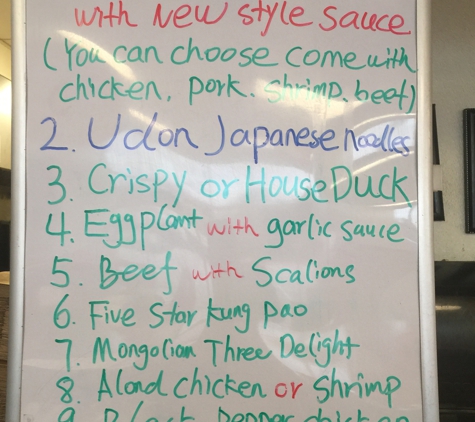 with New style sauce
(You can choose come with
chicken, pork. shrimp. beef)
2. Udon Japanese noodles
3. Crispy or House Duck
4. Eggplant with garlic sauce
5. Beef with Scalions
6. Five Star kung pao
7. Mongolian Three Delight
8. Alond chicken or shrimp
9. Black Pepper chicken